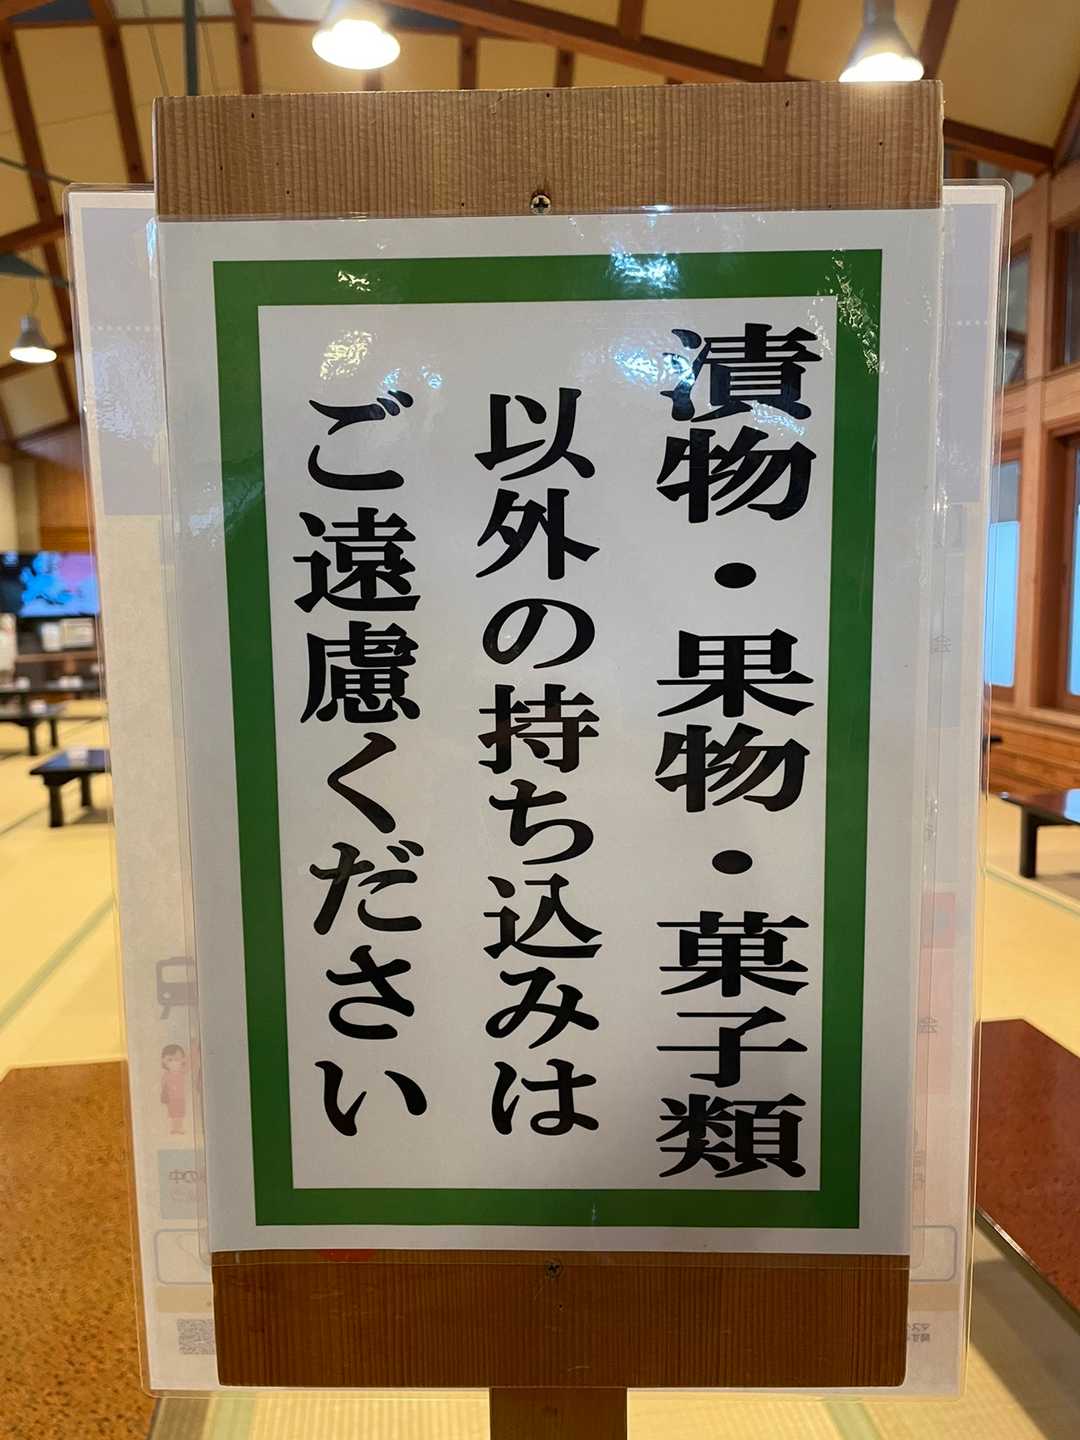 漬物・果物・菓子類
以外の持ち込みは
ご遠慮ください